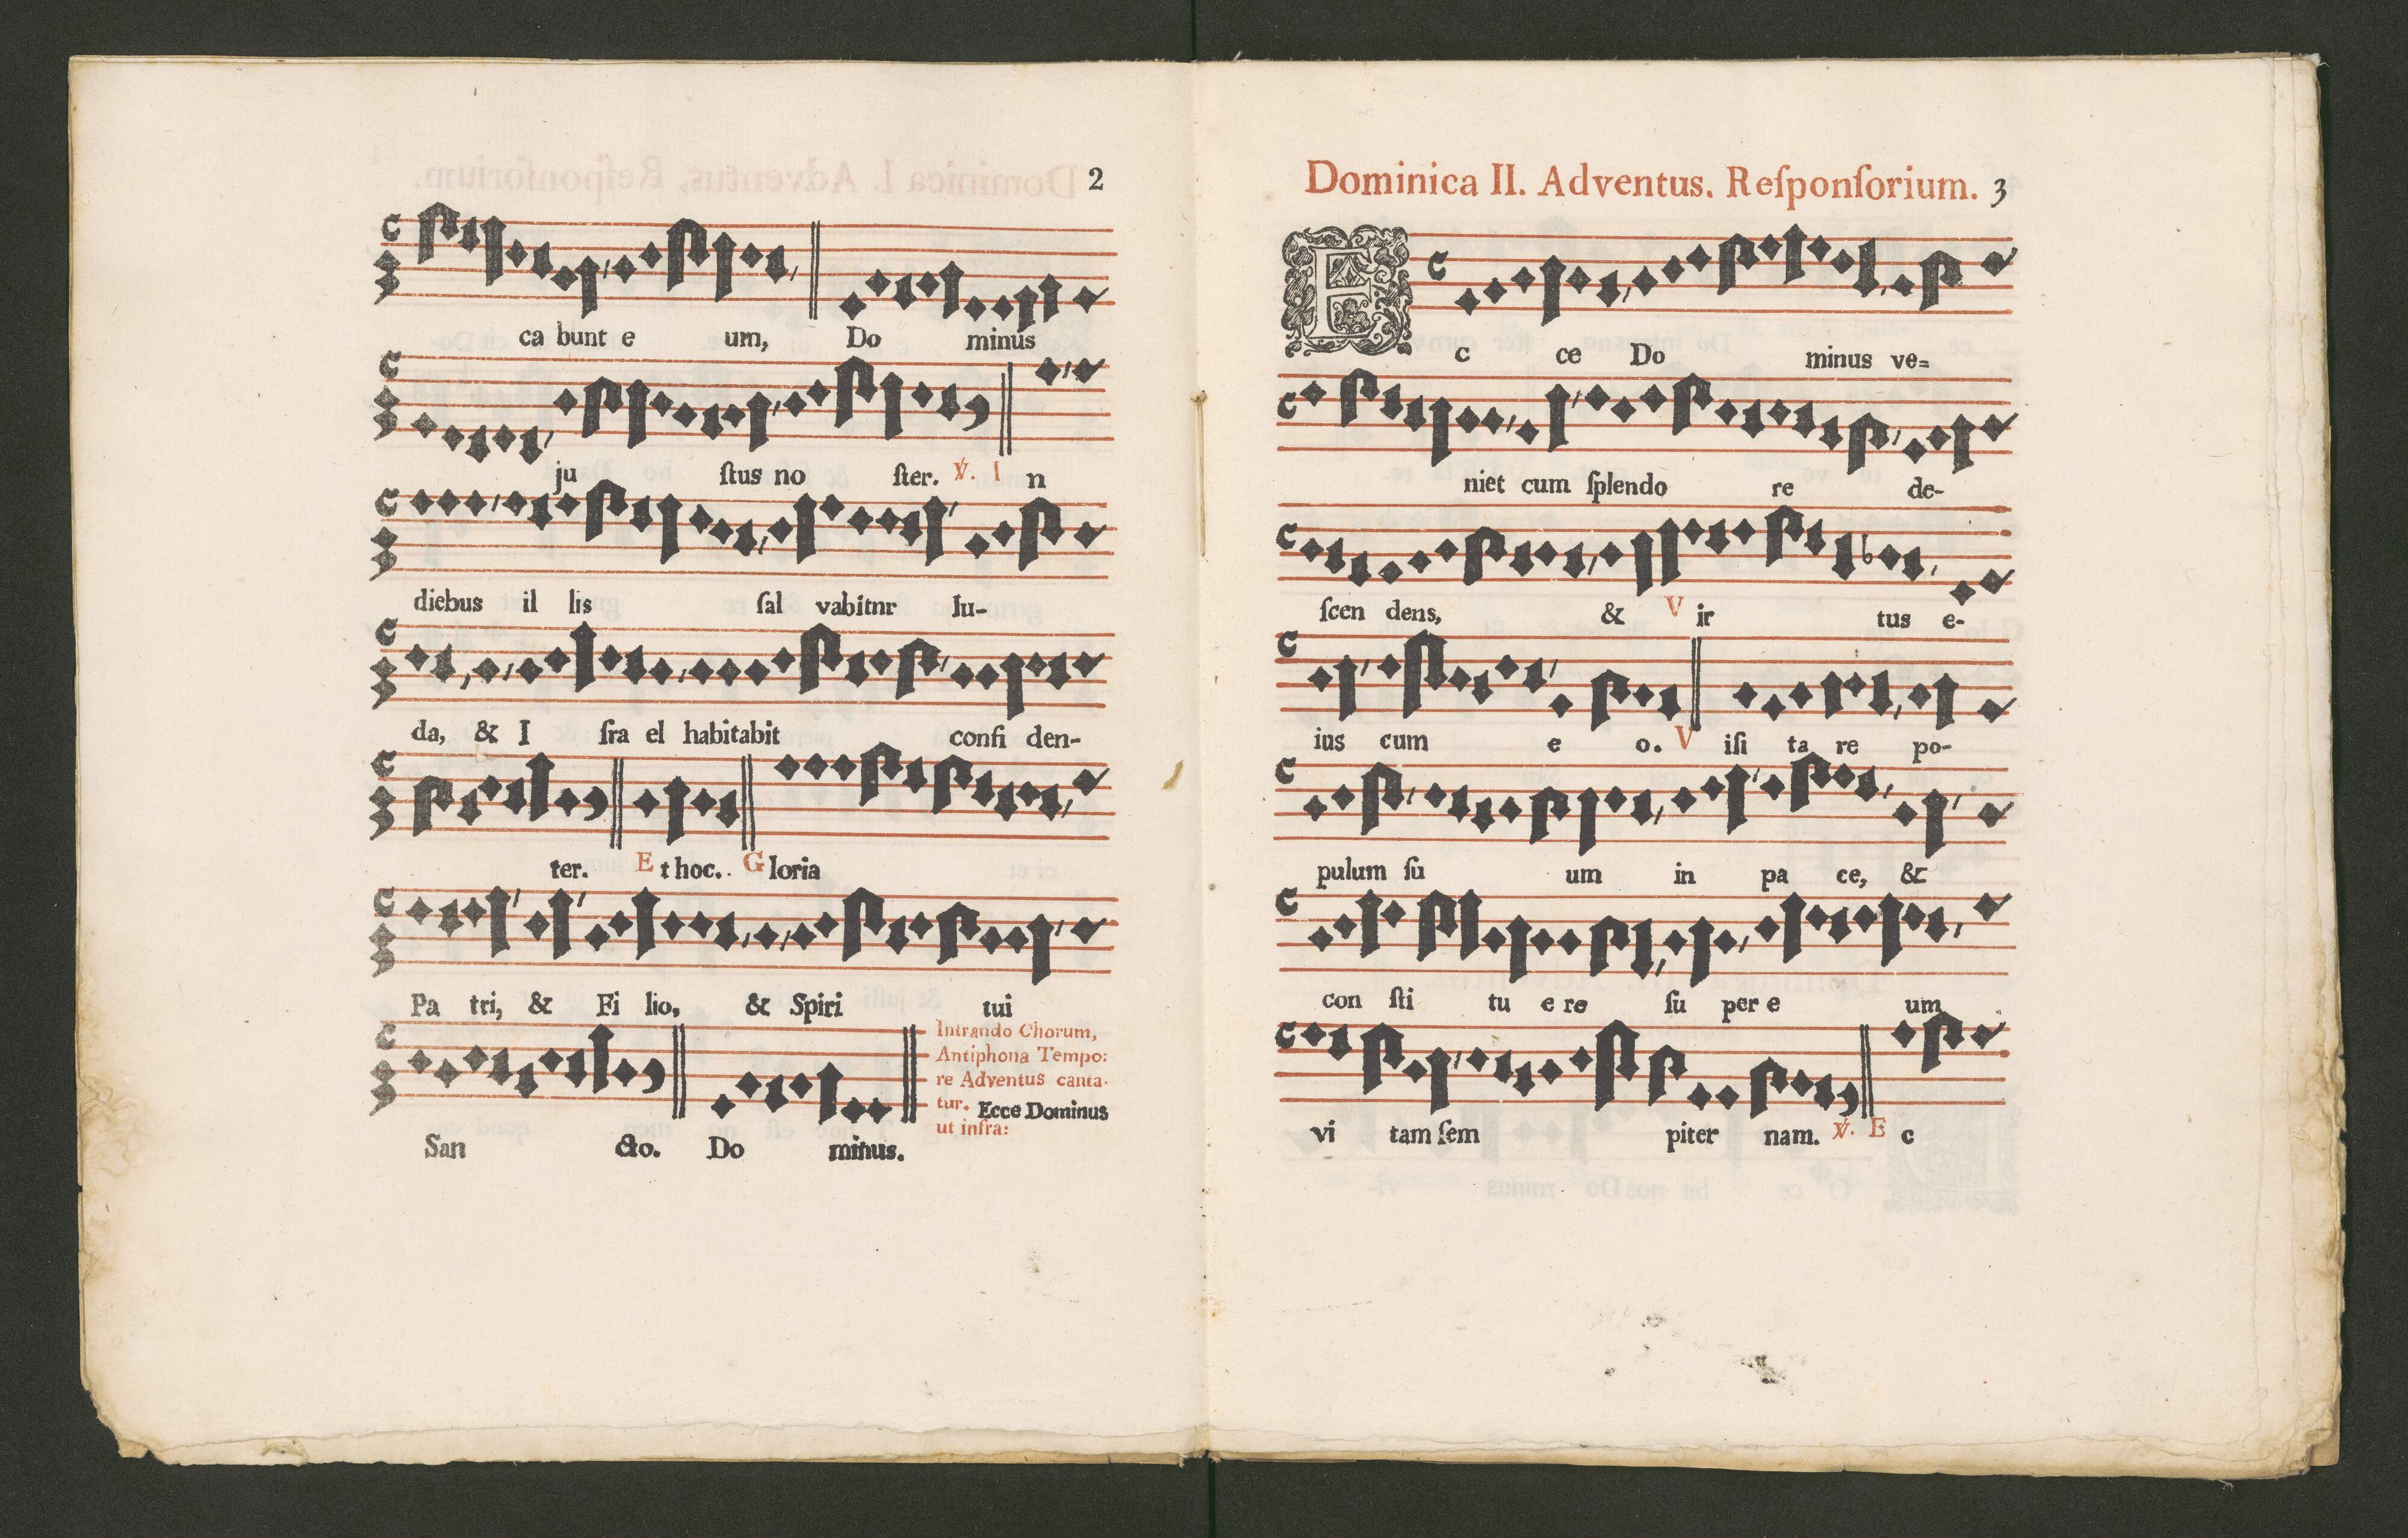 2
ca bunt e um, Do minus
ju ſtus no ſter. ℣. I n
diebus il lis ſal vabitnr Iu-
da, & I ſra el habitabit confi den-
ter. E t hoc. G loria
Pa tri, & Fi lio, & Spiri tui
Intrando Chorum,
Antiphona Tempo:
re Adventus canta-
tur. Ecce Dominus
ut infra:
San cto. Do minus.
Dominica II. Adventus. Reſponſorium. 3
E c ce Do minus ve=
niet cum ſplendo re de-
ſcen dens, & V ir tus e-
ius cum e o. V iſi ta re po-
pulum ſu um in pa ce, &
con ſti tu e re ſu per e um
vi tam ſem piter nam. ℣. E c